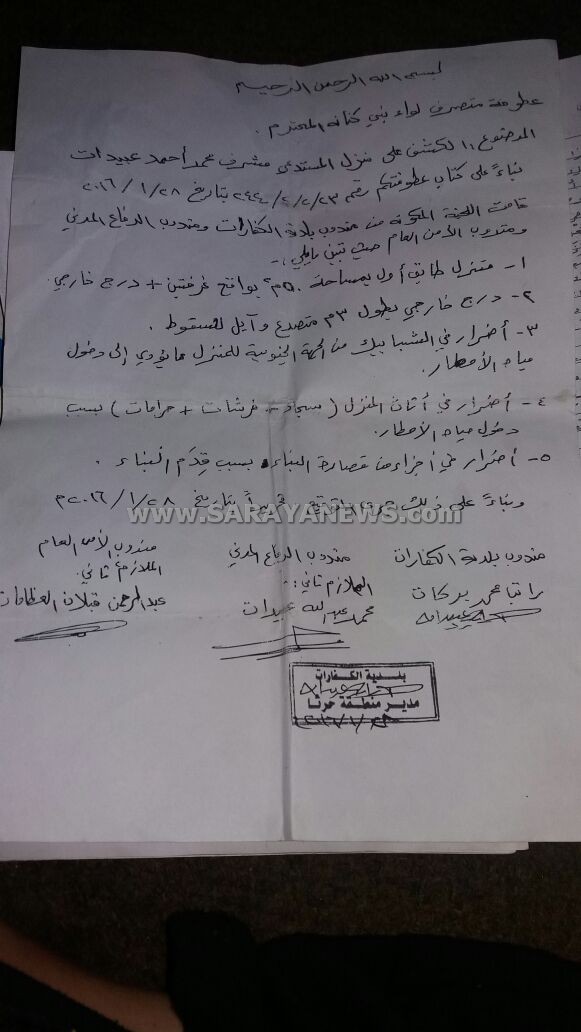 بسم الله الرحمن الرحيم
عطوفة متصرف لواء بني كنانه المحترم .
الموضوع :: الكشف على منزل المستدعي مشرف محمد أحمد عبيدات
بناءً على كتاب عطوفتكم رقم ٢٣/٢/٢/٢٤٤ بتاريخ ٢٨/١/٢٠١٦
قامت اللجنة المكونه من مندوب بلدية الكفارات ومندوب الدفاع المدني
ومندوب الأمن العام حيث تبين ما يلي :-
١- منزل طابق أول بمساحة ٥٠م٢ بواقع غرفتين + درج خارجي .
٢- درج خارجي بطول ٣م متصدع وآيل للسقوط .
٣- أضرار في الشبابيك من الجهة الجنوبية للمنزل مما يؤدي إلى دخول
مياه الأمطار .
٤- أضرار في أثاث المنزل ( سجاد + فرشات + حرامات ) بسبب
دخول مياه الأمطار .
٥- أضرار في أجزاء من قصارة البناء بسبب قِدَم البناء .
وبناءً على ذلك جرى تحريراً بتاريخ ٢٨/١/٢٠١٦م
www.SARAYANEWS.com
مندوب بلدية الكفارات مندوب الدفاع المدني مندوب الأمن العام
الملازم ثاني :- الملازم ثاني :
محمد بركات محمد عبدالله عبيدات عبدالرحمن قبلان العظامات
بلدية الكفارات
مدير منطقة حرثا